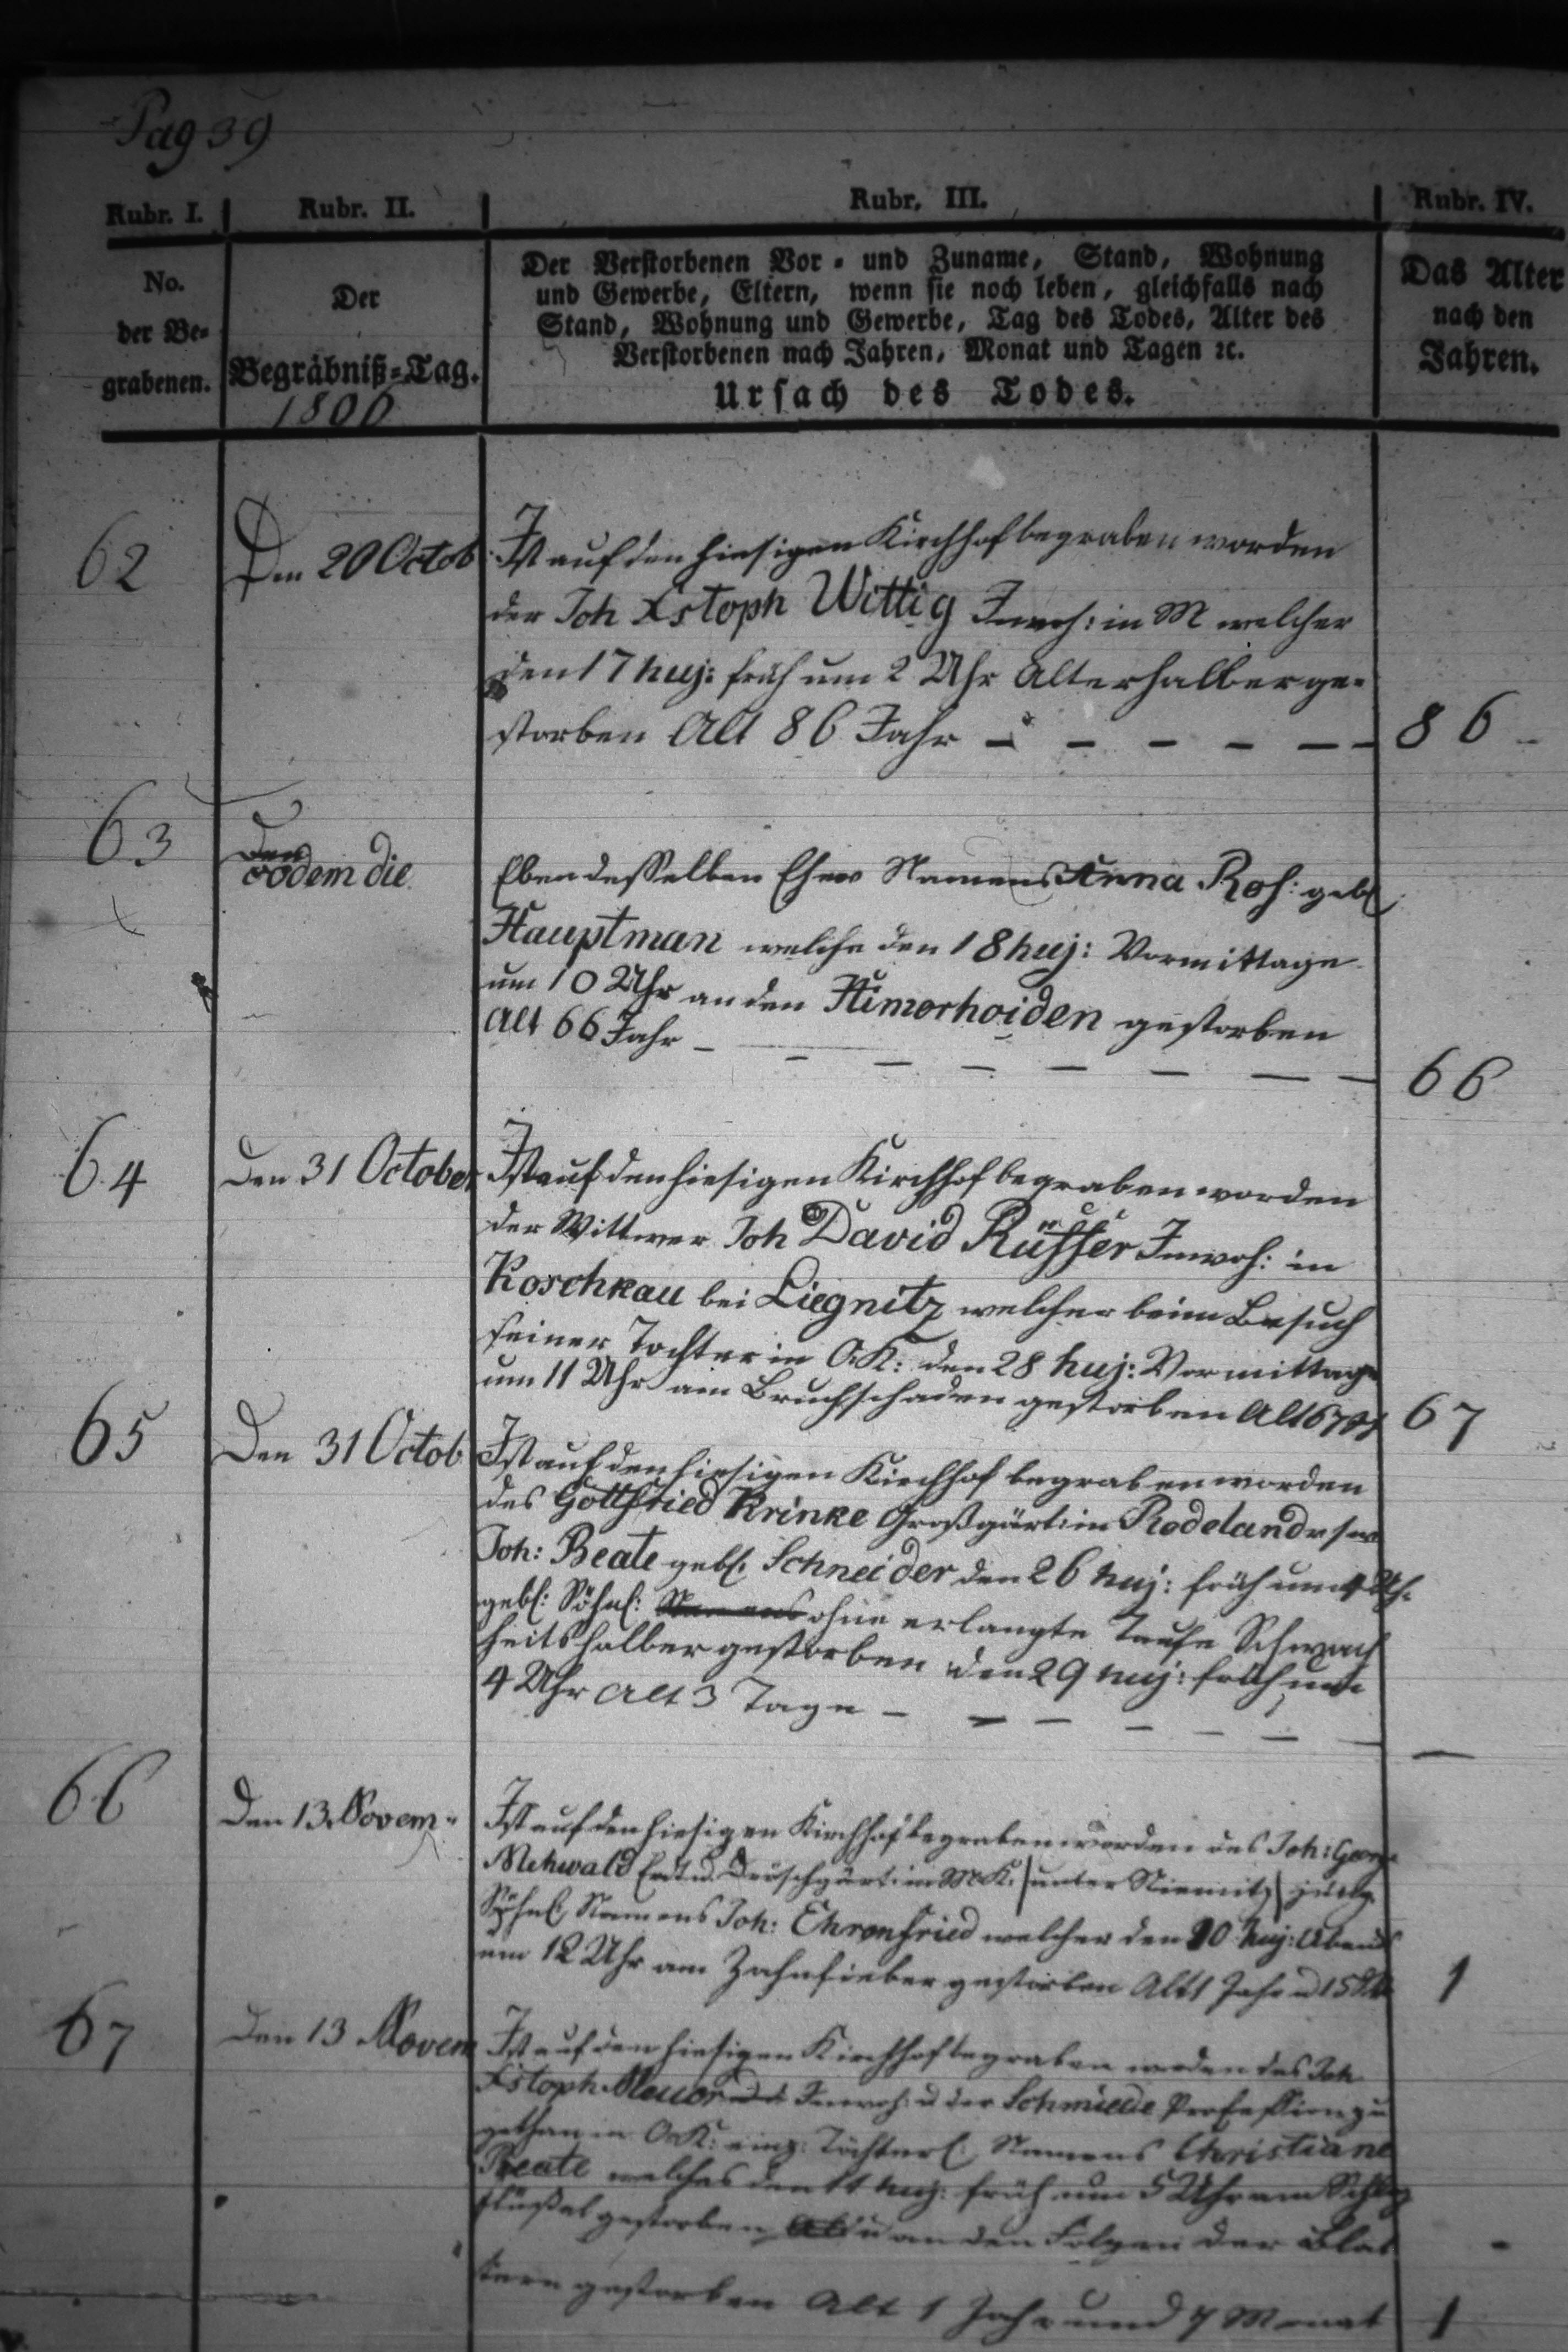 Pag 39
Rubr. I. Rubr. II. Rubr. III. Rubr. IV.
No.
der Be-
grabenen.
Der
Begräbniß-Tag.
1800
Der Verstorbenen Vor- und Zuname, Stand, Wohnung
und Gewerbe, Eltern, wenn sie noch leben, gleichfalls nach
Stand, Wohnung und Gewerbe, Tag des Todes, Alter des
Verstorbenen nach Jahren, Monat und Tagen ꝛc.
Ursach des Todes.
Das Alter
nach den
Jahren.
62 Den 20 Octob Ist auf den hiesigen Kirchhof begraben worden
der Joh Xstoph Wittig Inwoh: in M welcher
den 17 huj: früh um 2 Uhr Alterhalber ge-
storben Alt 86 Jahr 86
63 eodem die Eben desselben Ehew Namens Anna Ros: geb
Hauptman welche den 18 huj: Vormittage
um 10 Uhr an den Himorhoiden gestorben
Alt 66 Jahr 66
64 Den 31 October Ist auf den hiesigen Kirchhof begraben worden
der Wittwer Joh David Rüffer Inwoh: in
Koschkau bei Liegnitz welcher beim Besuch
seiner Tochter in O.K: den 28 huj: Vormittage
um 11 Uhr am Bruchschaden gestorben Alt 67 67
65 Den 31 Octob Ist auf den hiesigen Kirchhof begraben worden
des Gottfried Krinke Großgärt: in Rodeland
Joh: Beate geb. Schneider den 26 huj: früh um 4 Uh
geb: Söhnl: ohne erlangte Taufe Schwach
heitshalber gestorben den 29 huj: früh um
4 Uhr Alt 3 Tage
66 Den 13. Novem Ist auf den hiesigen Kirchhof begraben worden des Joh: George
Mehwald Dröschgärt: in M.K. unter Niemitz
Söhnl Namens Joh: Ehrenfried welcher den 10 huj: Abends
um 12 Uhr am Zahnfieber gestorben Alt 1 Jahr u 15 1
67 Den 13 Novem Ist auf den hiesigen Kirchhof begraben worden des Joh
Xstoph Inwoh: u der Schmiede Profession zu
gethan in O.K: einz: Töchterl: Namens Christiane
Beate welches den 11 huj: früh um 5 Uhr am
gestorben u an den Folgen der Blat
tern gestorben Alt 1 Jahr und 7 Monat 1